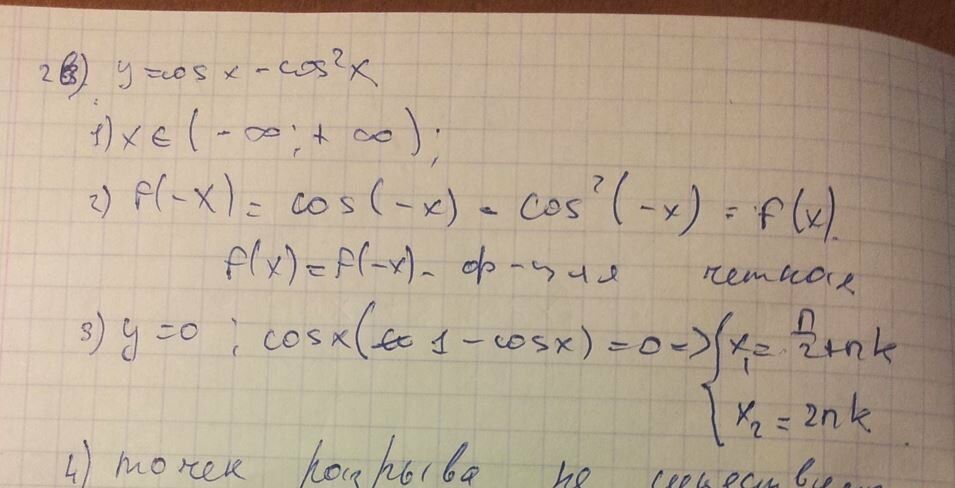 2в) y = cos x - cos²x
1) x ∈ (-∞; +∞);
2) f(-x) = cos(-x) - cos²(-x) = f(x).
f(x) = f(-x) - ф-ция четная
3) y = 0; cos x (1 - cos x) = 0 => { x₁ = π/2 + πk
x₂ = 2πk.
4) точек разрыва не существует